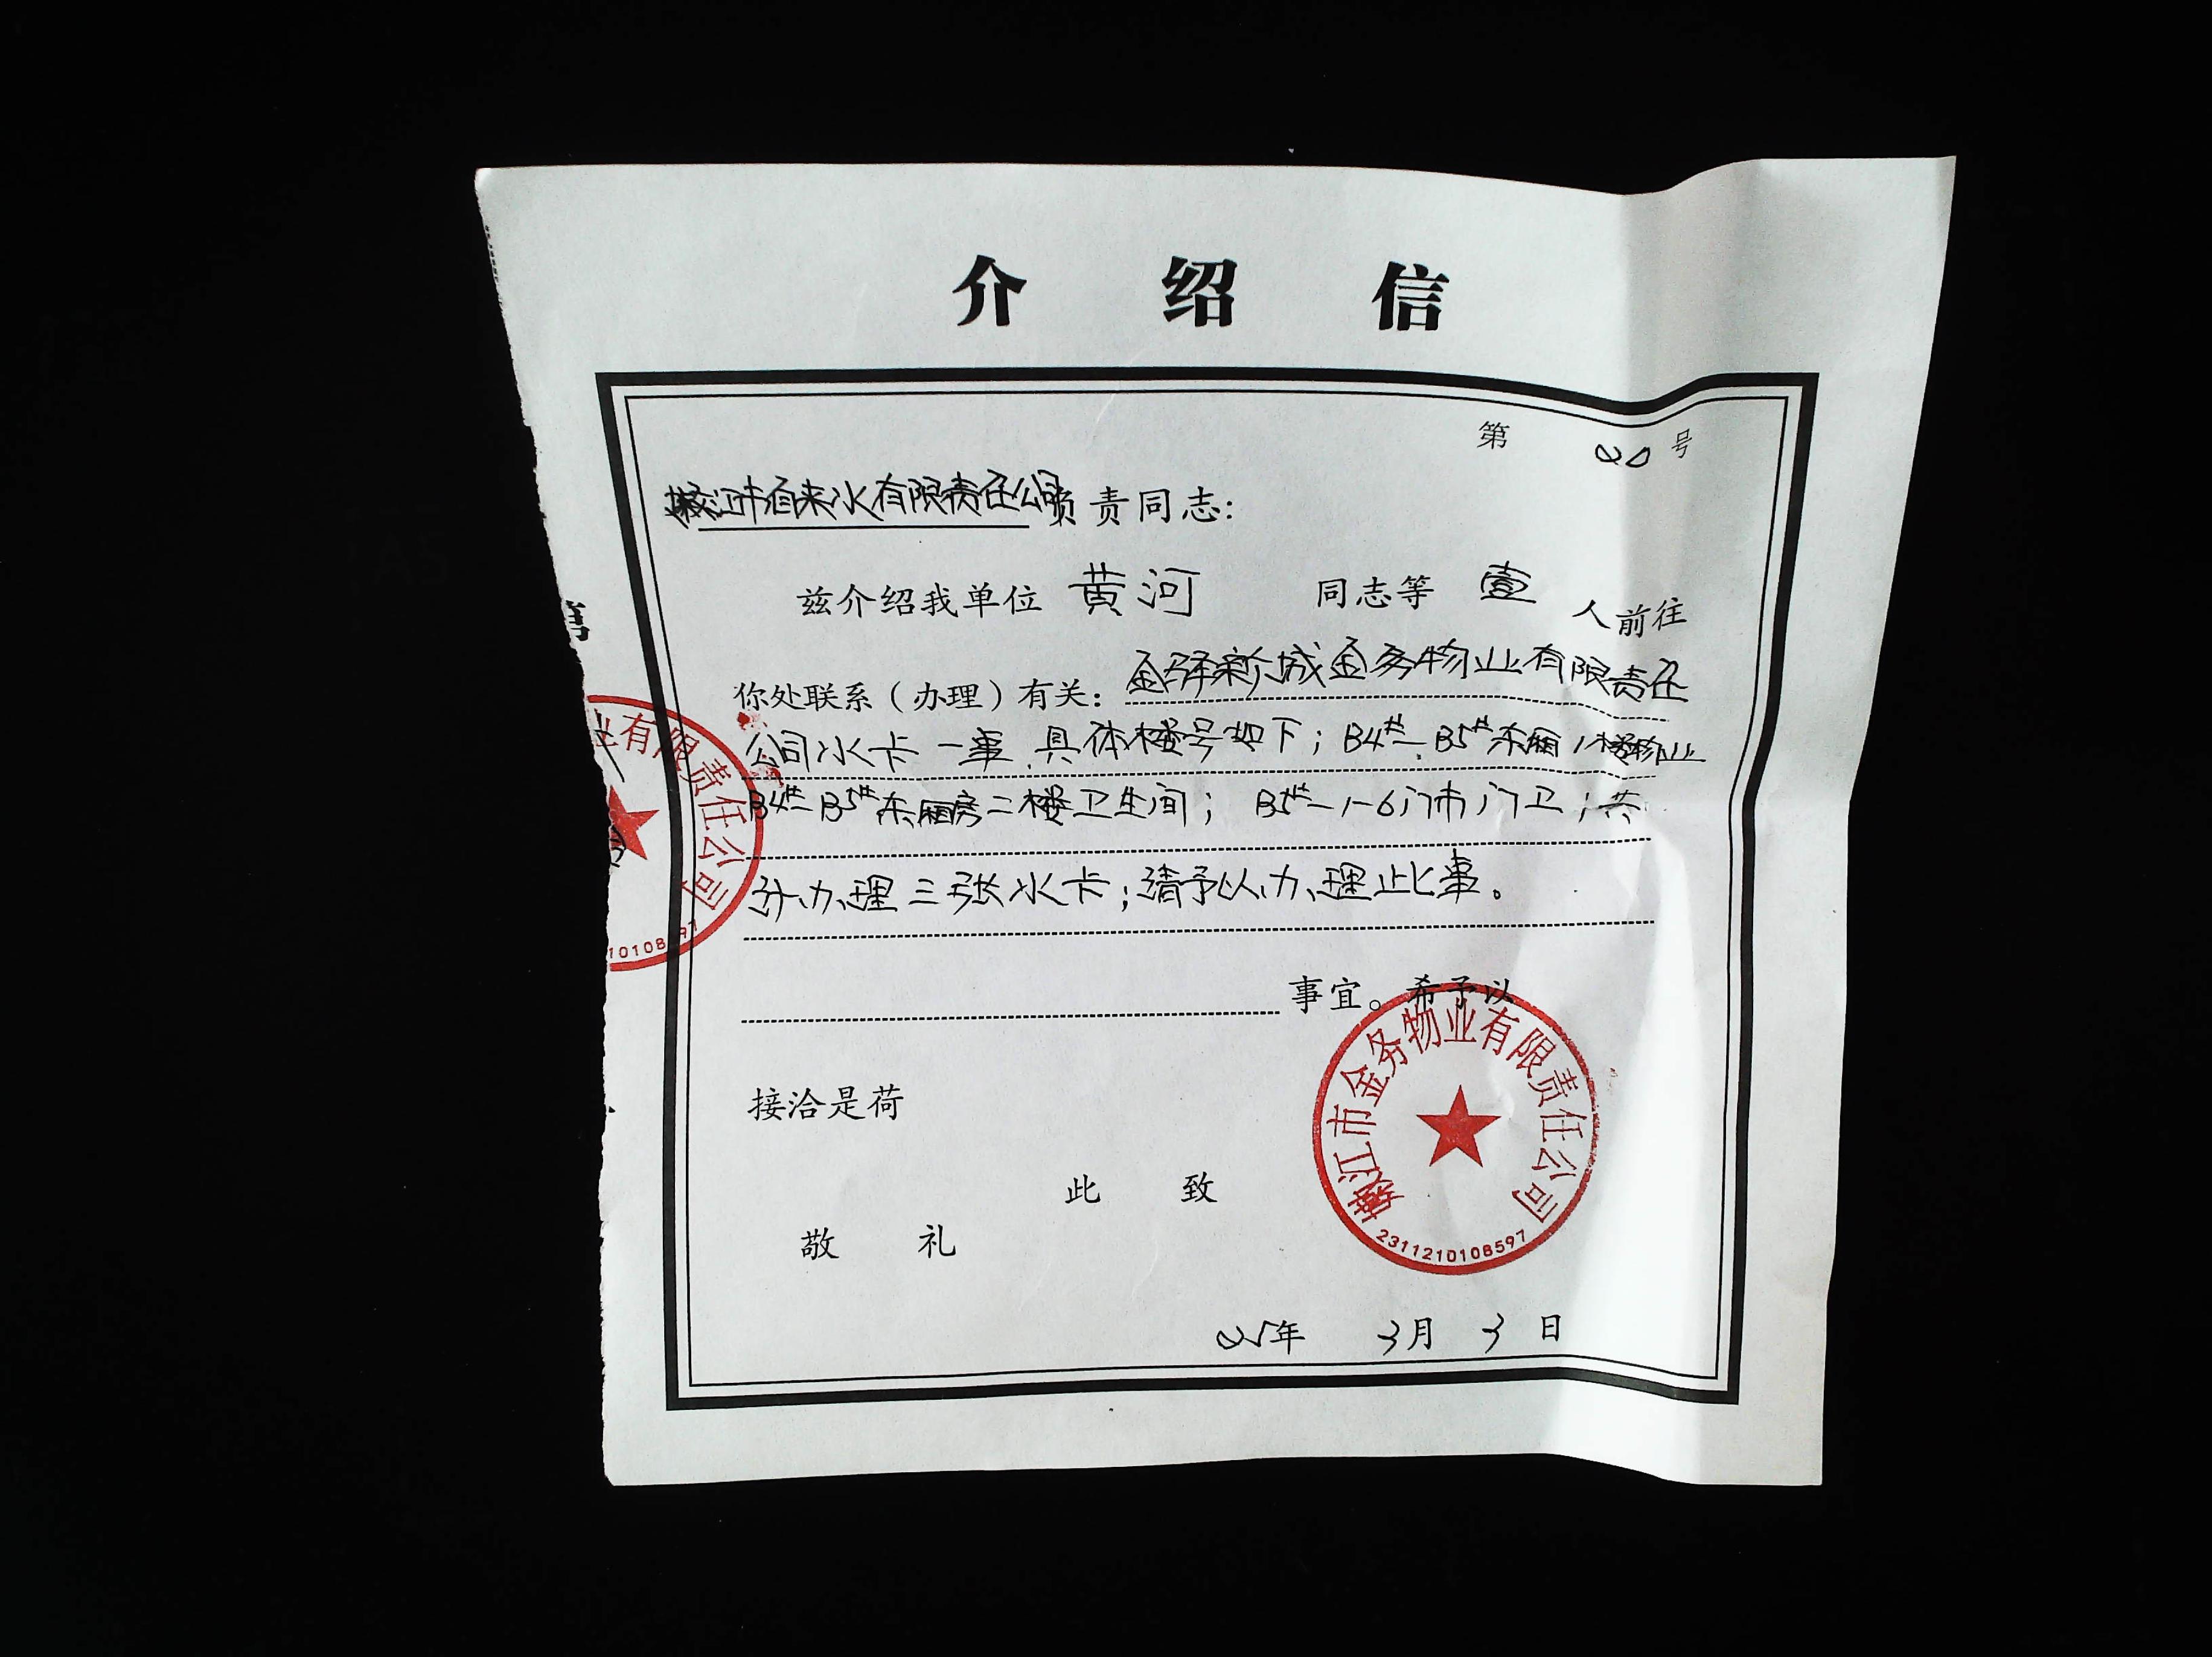 介绍信
第 20 号
嫩江市自来水有限责任公司负责同志:
兹介绍我单位 黄河 同志等 壹 人前往
你处联系（办理）有关: 金泽新城金务物业有限责任
公司水卡一事,具体楼号如下; B4#-B5#东厢1楼物业
B4#-B5#东厢房二楼卫生间; B5#-1-6门市门卫;共
计办理三张水卡;请予以办理此事。
事宜。希予以
接洽是荷
此致
敬礼
嫩江市金务物业有限责任公司
2311210108597
25年 3月 3日
第
业有限责任公司
10108597